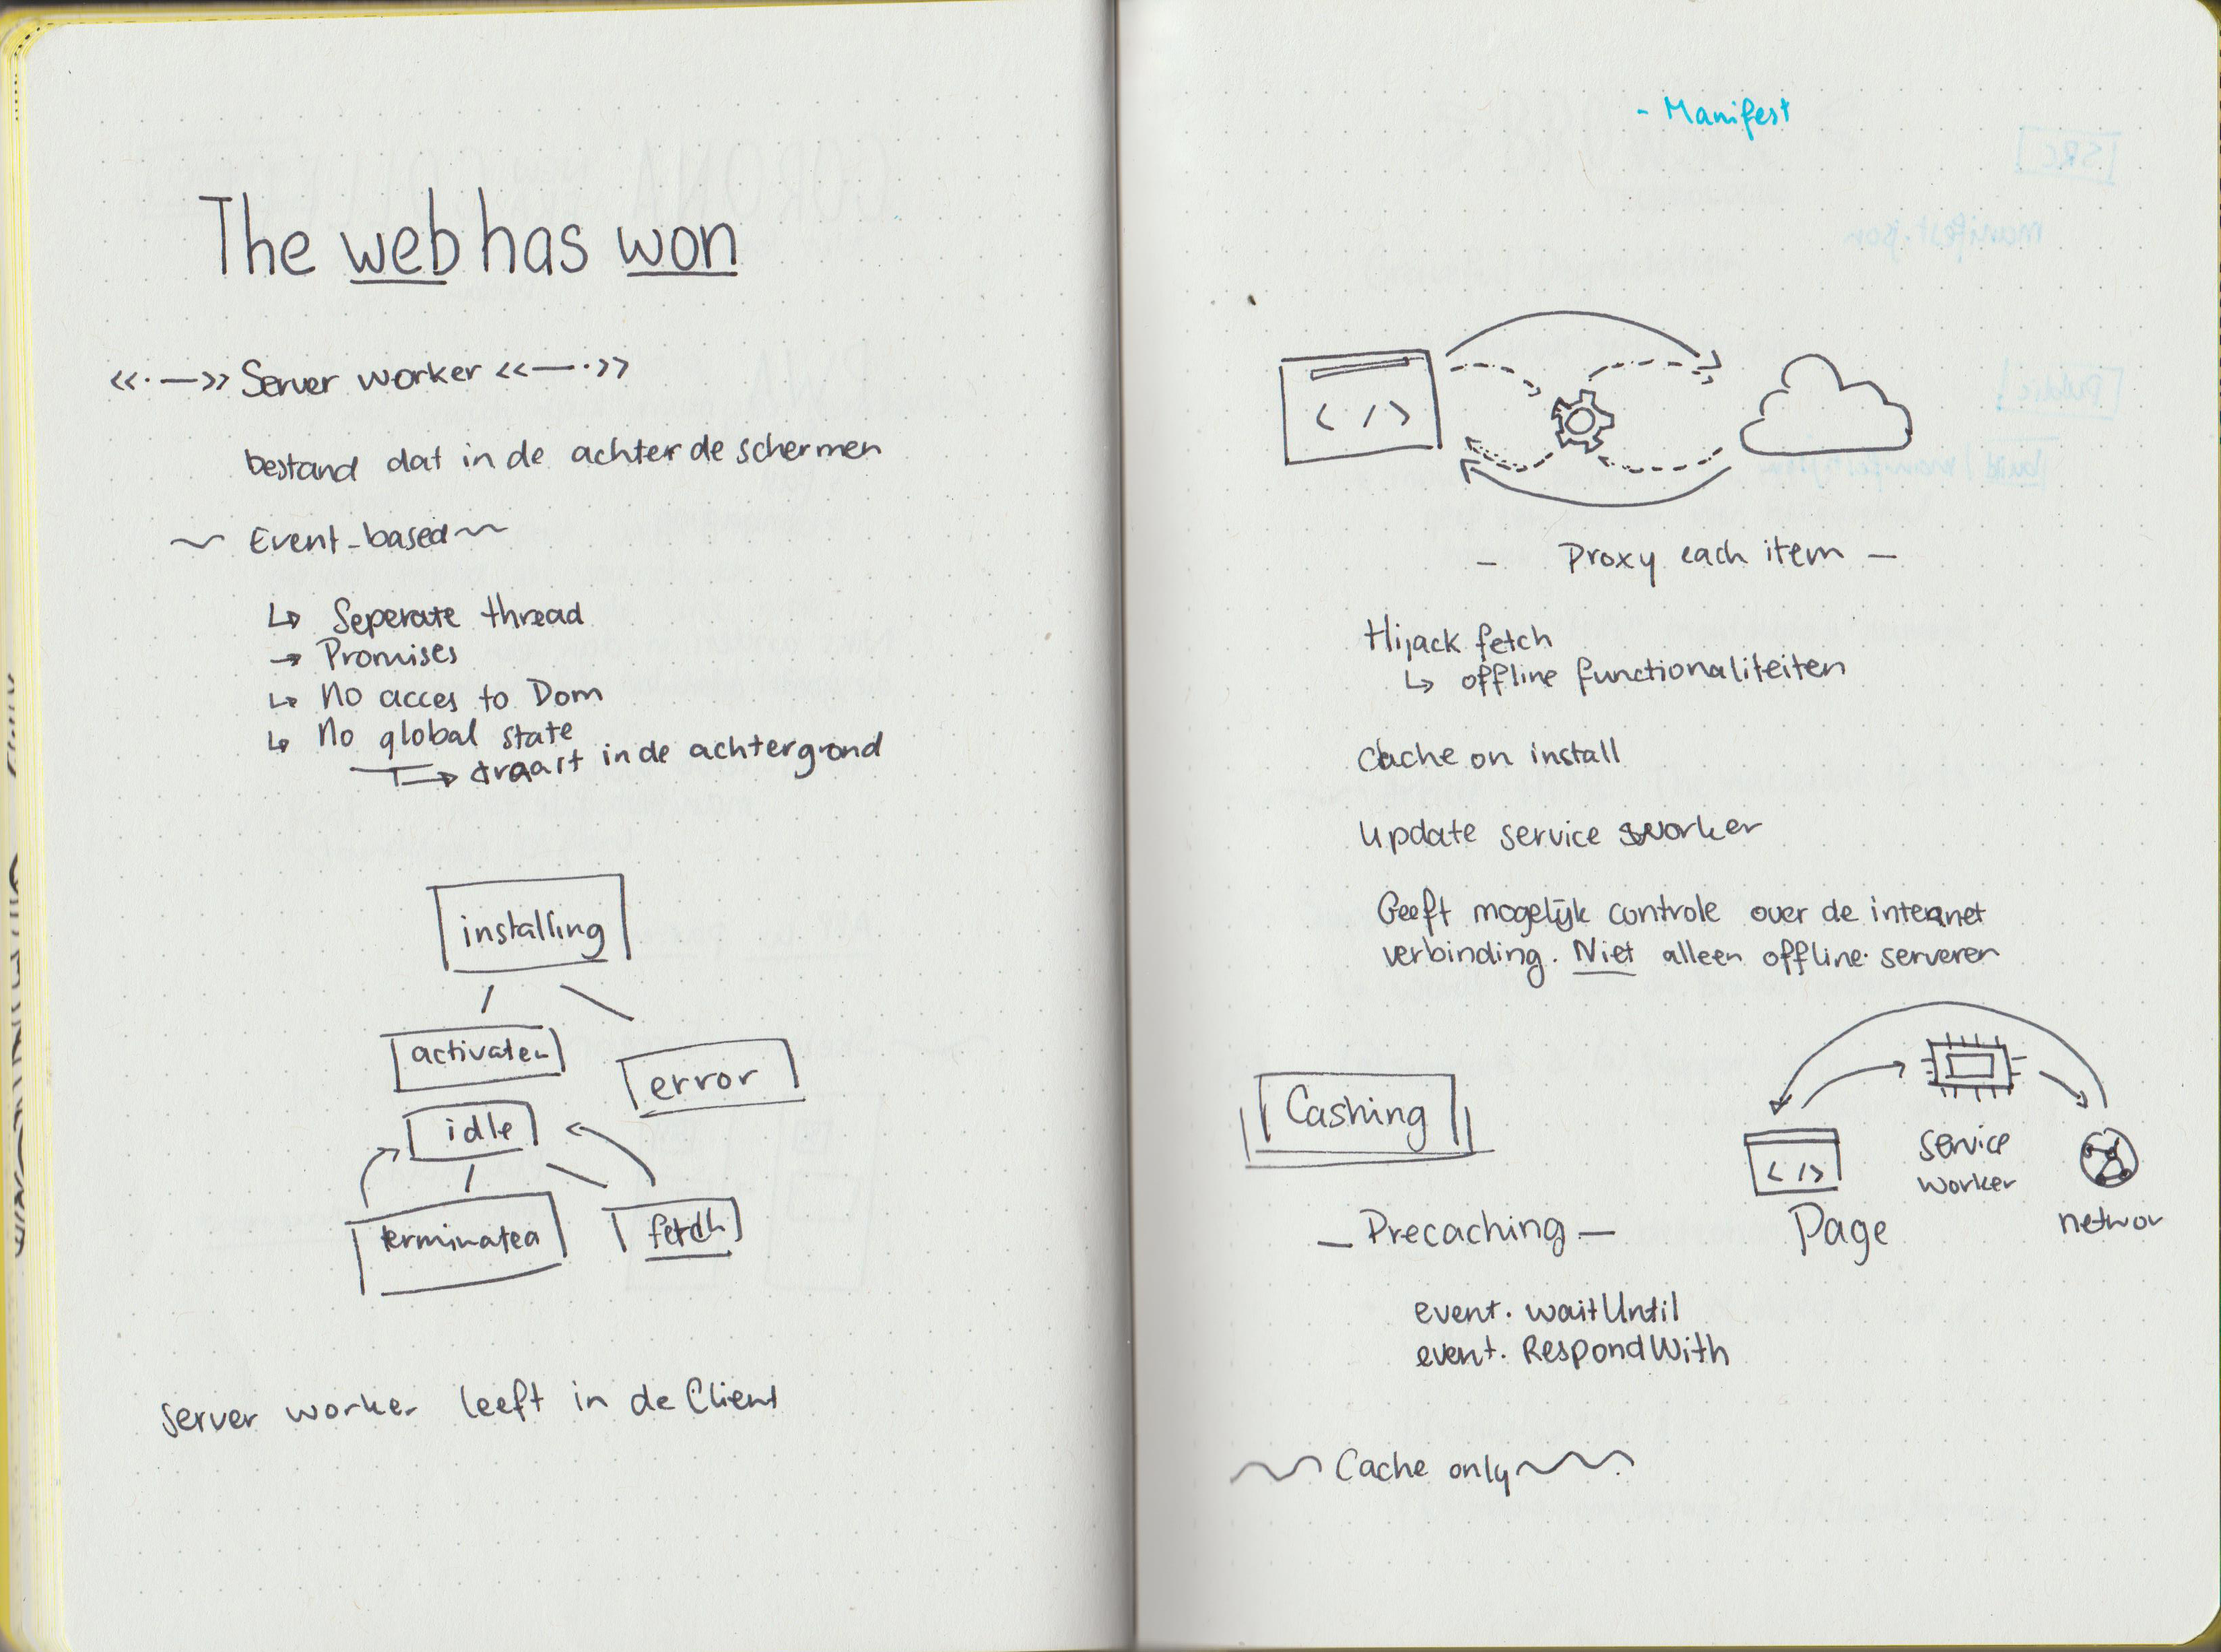 The web has won
<<·—>> Server worker <<—·>>
bestand dat in de achter de schermen
~ Event-based ~
↳ Seperate thread
→ Promises
↳ No acces to Dom
↳ No global state
draait in de achtergrond
installing
activaten
error
idle
terminated
fetch
server worker leeft in de Client
- Manifest
< / >
- Proxy each item -
Hijack fetch
↳ offline functionaliteiten
Cache on install
update service worker
Geeft mogelijk controle over de internet
verbinding. Niet alleen offline serveren
Cashing
< / >
service
worker
Page
networ
- Precaching -
event. waitUntil
event. RespondWith
~ Cache only ~